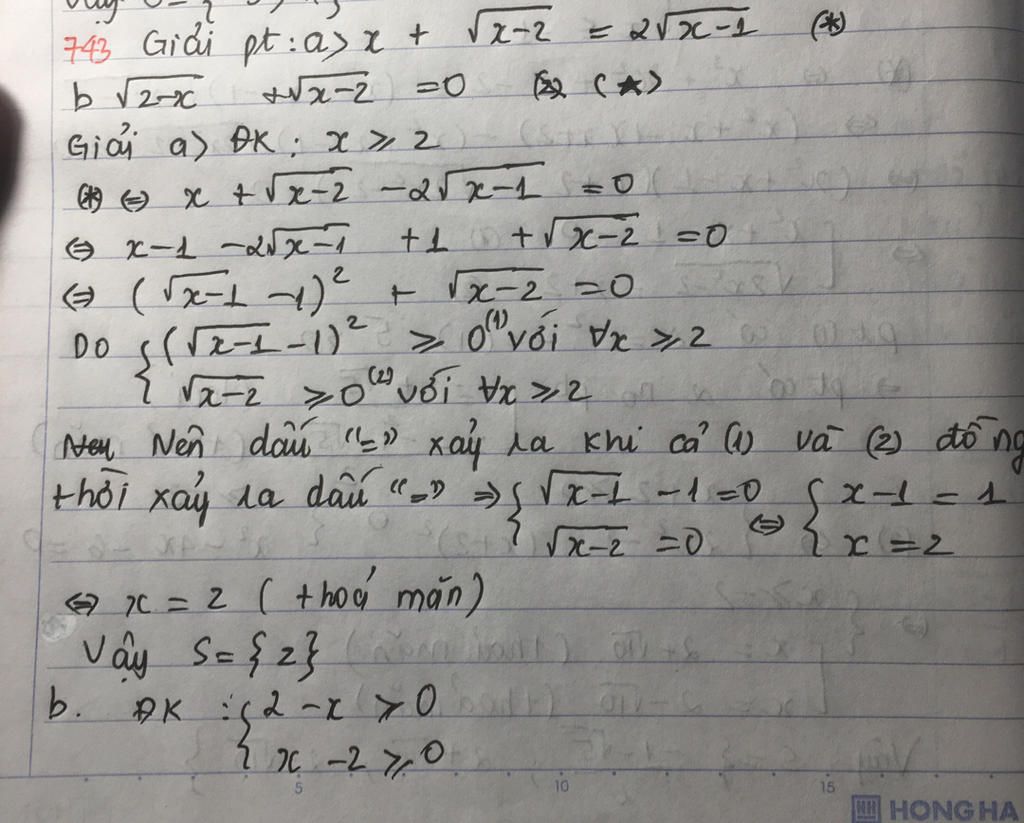 Vậy S = {
743 Giải pt : a> x + √x-2 = 2√x-1 (*)
b √2-x + √x-2 = 0 (★)
Giải a) ĐK : x ⩾ 2
(*) ⇔ x + √x-2 - 2√x-1 = 0
⇔ x - 1 - 2√x-1 + 1 + √x-2 = 0
⇔ (√x-1 - 1)² + √x-2 = 0
Do { (√x-1 - 1)² ⩾ 0 (1) với ∀x ⩾ 2
√x-2 ⩾ 0 (2) với ∀x ⩾ 2
Nên dấu "=" xảy ra khi cả (1) và (2) đồng
thời xảy ra dấu "=" ⇒ { √x-1 - 1 = 0 ⇔ { x - 1 = 1
√x-2 = 0 x = 2
⇔ x = 2 ( thoả mãn)
Vậy S = { 2 }
b. ĐK : { 2 - x ⩾ 0
x - 2 ⩾ 0
5 10 15
HONG HA